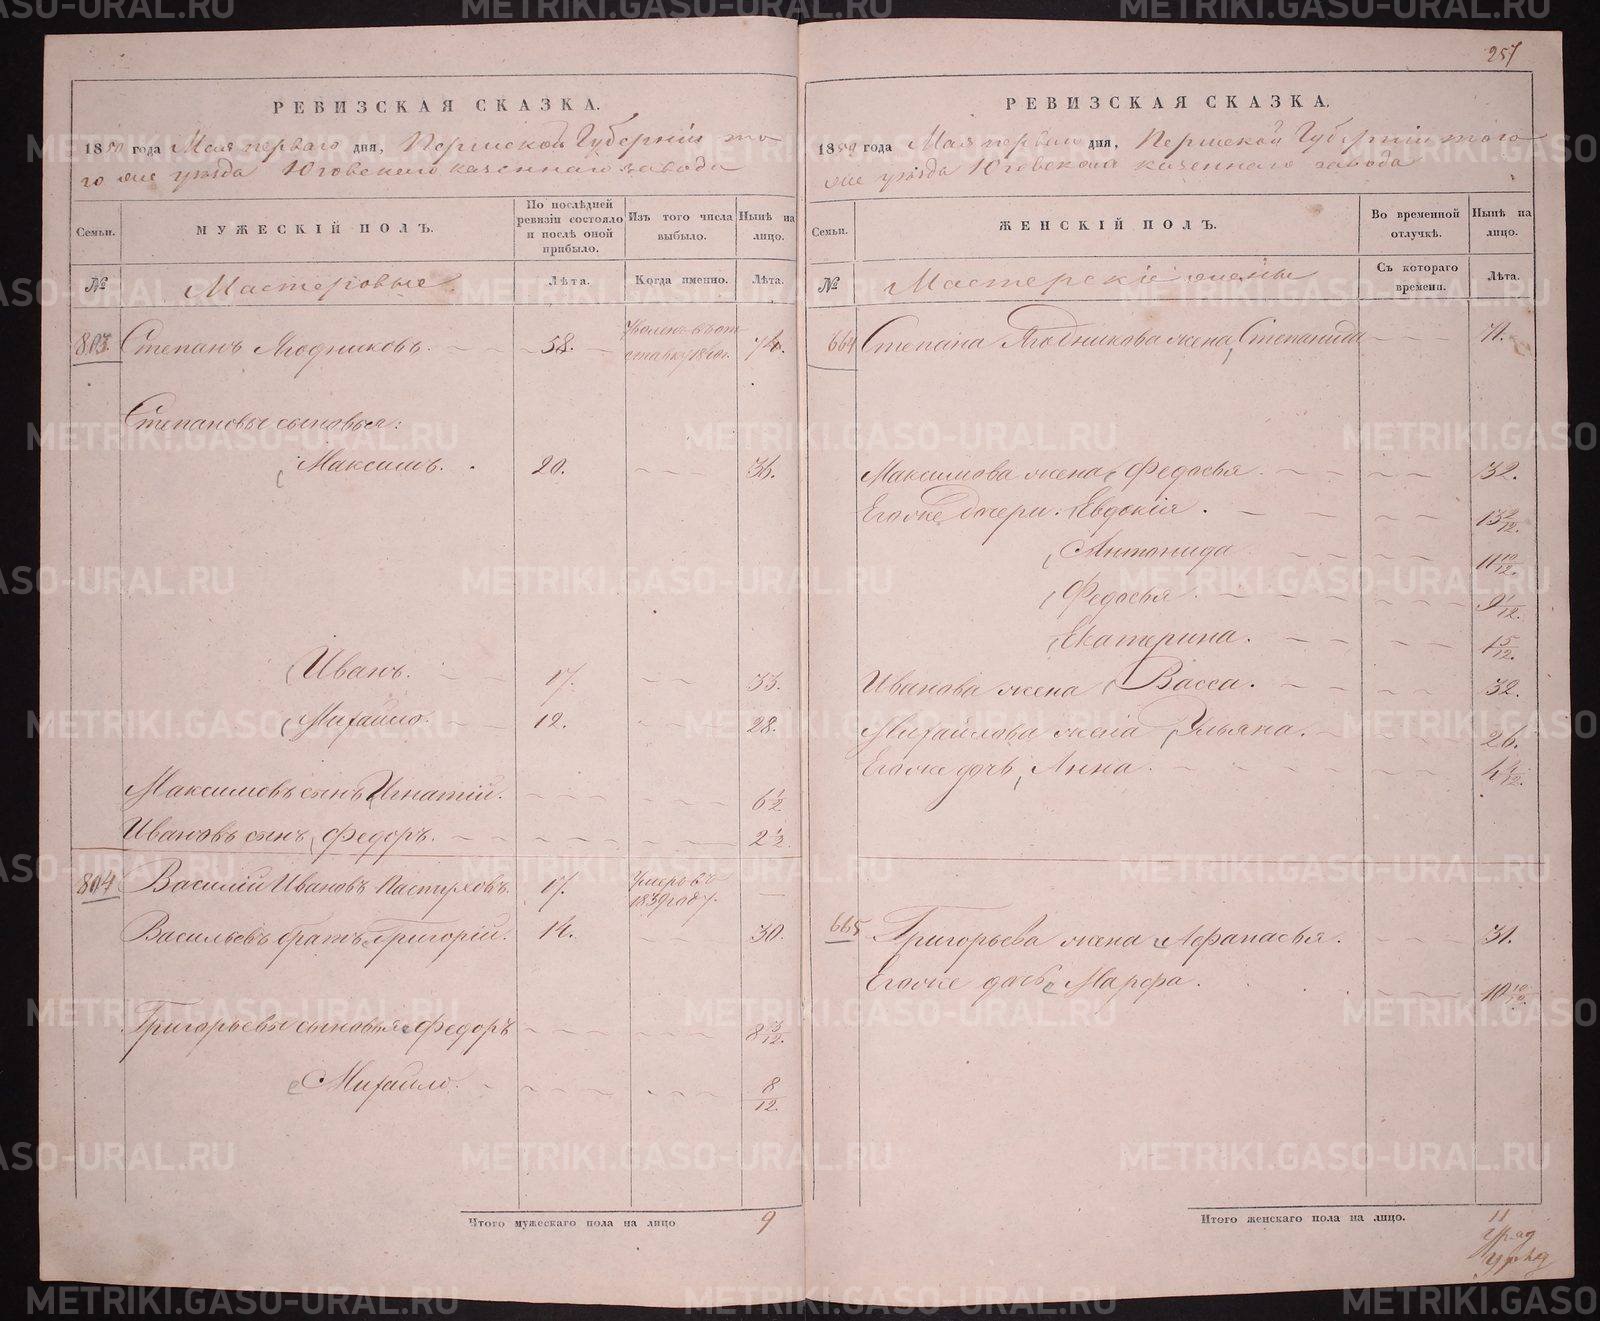 РЕВИЗСКАЯ СКАЗКА.
1850 года Мая перваго дня, Пермской Губерніи то-
го же уѣзда Юговскаго казеннаго завода
Семьи.
МУЖЕСКІЙ ПОЛЪ.
По послѣдней ревизіи состояло и послѣ оной прибыло.
Изъ того числа выбыло.
Нынѣ на лицо.
№
Мастеровые
Лѣта.
Когда именно.
Лѣта.
803. Степанъ Ягодниковъ. 58. Уволенъ въ от-
ставку 74.
Степановы сыновья:
Максимъ. 20. 36.
Иванъ. 17. 33.
Михайло. 12. 28.
Максимовъ сынъ Игнатій. 6 1/2
Ивановъ сынъ, Федоръ. 2 1/2
804 Василій Ивановъ Пастуховъ. 17. Умеръ въ
1839 году.
Васильевъ братъ Григорій. 14. 30.
Григорьевы сыновья Федоръ 8 3/12.
Михайло. 8/12.
Итого мужескаго пола на лицо 9
257
РЕВИЗСКАЯ СКАЗКА.
1850 года Мая перваго дня, Пермской Губерніи того
же уѣзда Юговскаго казеннаго завода
Семьи.
ЖЕНСКІЙ ПОЛЪ.
Во временной отлучкѣ.
Нынѣ на лицо.
№
Мастерскіе жены
Съ котораго времени.
Лѣта.
664 Степана Ягодникова жена, Степанида 71.
Максимова жена, Федосья 32.
Егоже дочери: Евдокія. 13 2/12.
Антонида 11 10/12.
Федосья 9 1/12.
Екатерина. 1 5/12.
Иванова жена Васса. 32.
Михайлова жена, Ульяна. 26.
Егоже дочь, Анна. 4 9/12.
665 Григорьева жена Афанасья. 31.
Егоже дочь Марфа. 10 10/12.
Итого женскаго пола на лицо. 11
METRIKI.GASO-URAL.RU